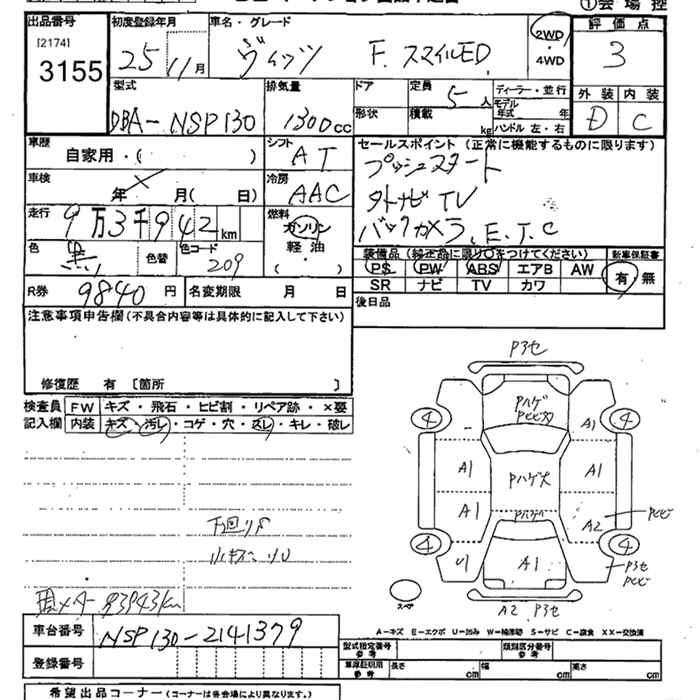 ①会場控
出品番号 初度登録年月 車名・グレード 評価点
[2174]
3155
25 11月
ヴィッツ F. スマイルED
2WD
・
4WD
3
型式 排気量 ドア 定員 ディーラー・並行
DBA-NSP130 1300cc 5人
形状 積載 kg
モデル年式 年
ハンドル 左・右
外装 内装
D C
車歴 シフト セールスポイント (正常に機能するものに限ります)
自家用・( ) AT
プッシュスタート
車検 冷房
年 月( 日) AAC
外ナビ TV
走行 燃料
9万3千942km ガソリン
バックカメラ、E.T.C
軽油
・
( )
色 色替 色コード
黒 209
装備品 (純正品に限り○をつけてください) 新車保証書
PS PW ABS エアB AW 有・無
SR ナビ TV カワ
R券 9840円 名変期限 月 日
後日品
注意事項申告欄 (不具合内容等は具体的に記入して下さい)
修復歴 有 〔箇所 〕
検査員 FW キズ・飛石・ヒビ割・リペア跡・×要
記入欄 内装 キズ・汚レ・コゲ・穴・スレ・キレ・破レ
P3セ
Pハゲ
4 4
A1
A1 Pハゲ大 A1
A1 Pハゲ A2
4 4
A1
P3セ
スペア
A2 P3セ
下回りサ
93943km
車台番号 NSP130-2141379
登録番号
A-キズ E-エクボ U-凹み W-補修跡 S-サビ C-腐食 XX-交換済
型式指定番号 参考 類別区分番号 参考
車庫証明用 参考 長さ cm 幅 cm 高さ cm
希望出品コーナー (コーナーは各会場により異なります。)